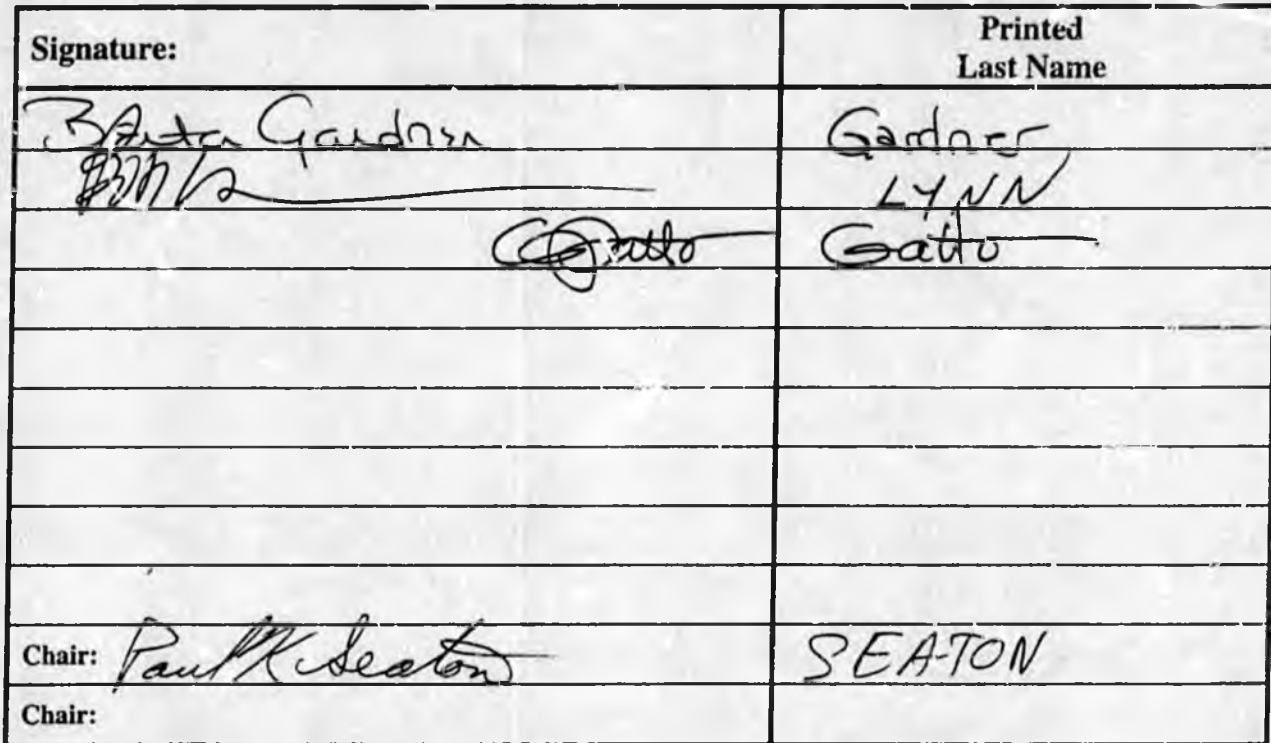 Signature:
Printed
Last Name
Gardner
Gardner
LYNN
Gatto
Gatto
Chair: Paul K Seaton
SEATON
Chair: